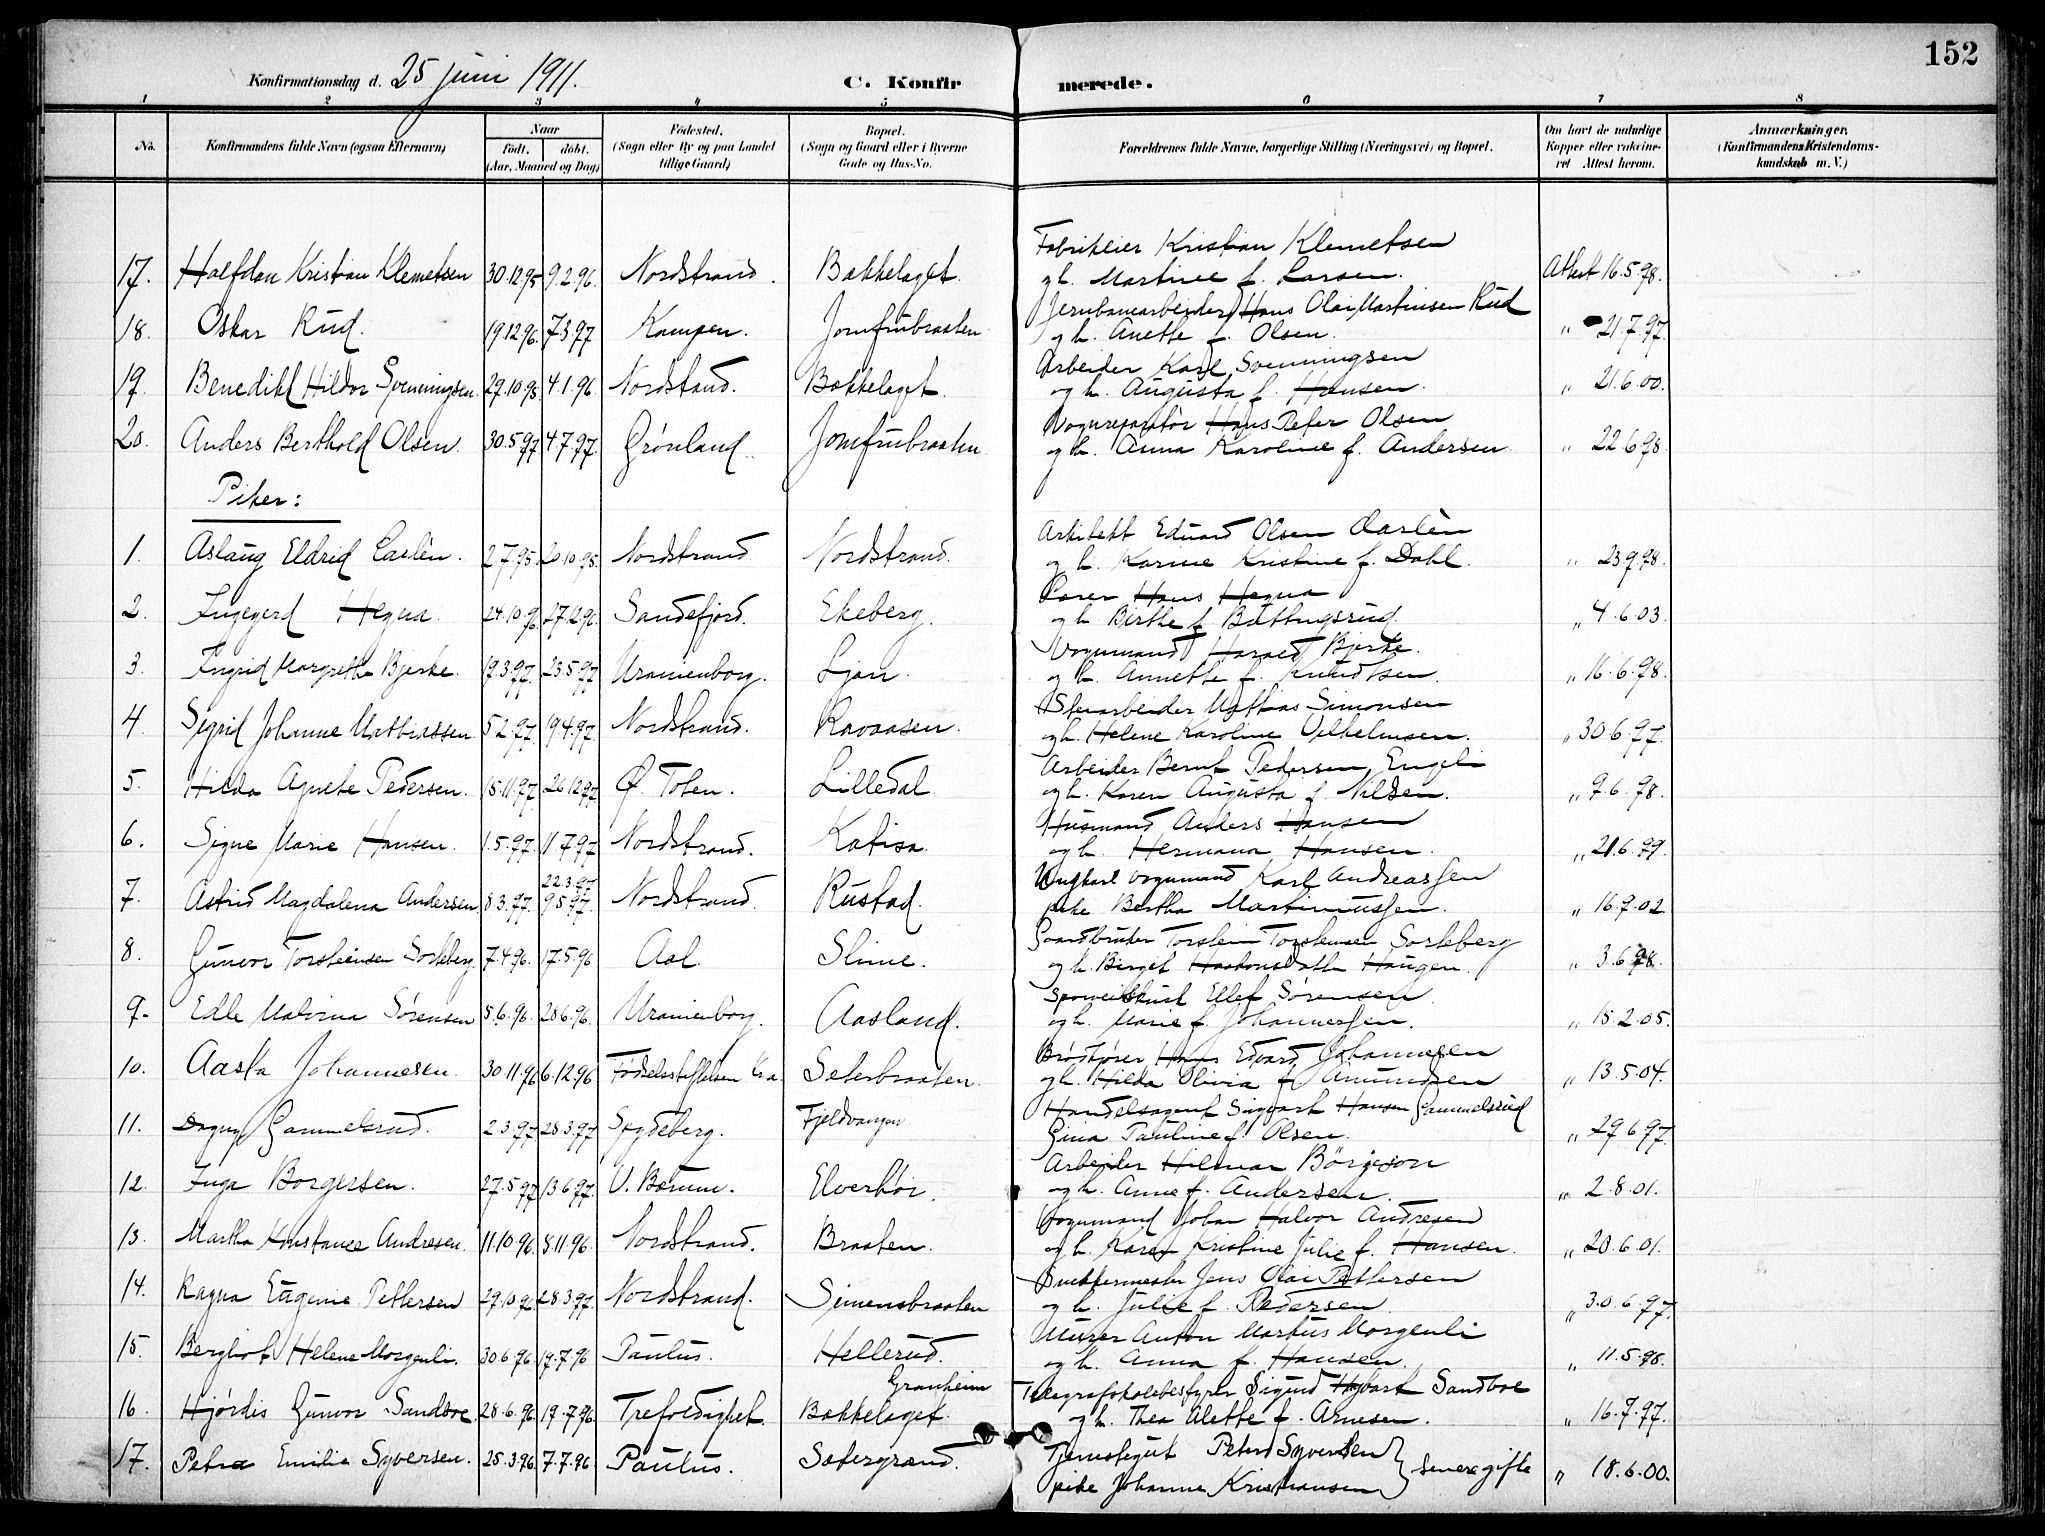 152
Konfirmationsdag d. 25 juni 1911. C. Konfirmerede.
1 2 3 4 5 6 7 8
No. Konfirmandens fulde Navn (ogsaa Efternavn) Naar født. døbt. (Aar, Maaned og Dag) Fødested. (Sogn eller By og paa Landet tillige Gaard) Bopæl. (Sogn og Gaard eller i Byerne Gade og Hus-No. Forældrenes fulde Navne, borgerlige Stilling (Næringsvei) og Bopæl. Om havt de naturlige Kopper eller vaccineret Attest herom. Anmærkninger. (Konfirmandens Kristendomskundskab m. V.)
Fabrikeier Kristian Klemetsen
17. Halfdan Kristian Klemetsen 30.12.95 9.2.96. Nordstrand. Bækkelaget. og h. Martine f. Larsen. Attest 16.5.98.
Jernbanearbeider Hans Olai Martinsen Rud
18. Oskar Rud. 19.12.96. 7.3.97 Kampen. Jomfrubraaten og h. Anette f. Olsen. " 21.7.97.
Arbeider Karl Svenningsen
19. Benedikt Hildor Svenningsen. 29.10.95. 4.1.96. Nordstrand. Bækkelaget. og h. Augusta f. Hansen. " 21.6.00.
Vognreparatør Hans Peter Olsen
20. Anders Berthold Olsen. 30.5.97 4.7.97. Grønland. Jomfrubraaten og h. Anna Karoline f. Andersen. " 22.6.98.
Piker:
Arkitekt Edvard Olsen
1. Aslaug Eldrid 2.7.95. 20.10.95. Nordstrand Nordstrand. og h. Karine Kristine f. Dahl. " 23.9.98.
Hans Hegna
2. Ingegerd Hegna. 24.10.96. 27.12.96. Sandefjord. Ekeberg. og h. Birthe f. " 4.6.03.
Vognmand Harald Bjerke.
3. Ingrid Margrethe Bjerke. 19.3.97. 23.5.97 Uranienborg. Ljan. og h. Annette f. Knudtsen. " 16.6.98.
Stenarbeider Mathias Simonsen
4. Sigrid Johanne Mathiassen 5.2.97. 19.4.97. Nordstrand. Ravaasen. og h. Helene Karoline Vilhelmsen. " 30.6.97.
Arbeider Bernt Pedersen Engeli
5. Hilda Agnete Pedersen. 15.11.97. 26.12.97 Ø. Toten. Lilledal. og h. Karen Augusta f. Nilsen. " 9.6.98.
Husmand Anders Hansen
6. Signe Marie Hansen. 1.5.97. 11.7.97 Nordstrand. Katisa. og h. Hermana Hansen. " 21.6.99.
22.3.97 Ungkarl vognmand Karl Andreassen
7. Astrid Magdalena Andersen 8.3.97. 9.5.97. Nordstrand. Rustad. pike Bertha Martinussen. " 16.9.02
Gaardbruker Torstein Torsteinsen Sorteberg
8. Gunvor Torsteinsen Sorteberg. 7.4.96. 17.5.96 Aal. Slime. og h. Birget Haakonsdatter Haugen. " 3.6.98.
Ellef Sørensen
9. Edle Malvina Sørensen 5.6.96. 28.6.96. Uranienborg. Aasland. og h. Marie f. Johannessen. " 15.2.05.
Brødkjører Hans Edvard Johannesen
10. Aasta Johannesen. 30.11.96 6.12.96 Fødselsstiftelsen Kra. Seterbraaten. og h. Hilda Olivia f. Amundsen " 13.5.04.
Handelsagent Sigvart Hansen Gammelsrud
11. Dagny Gammelsrud. 2.3.97 28.3.97 Spydeberg. Fjeldvangen Gina Pauline f. Olsen. " 29.6.97.
Arbeider Hilmar Börjeson
12. Inga Borgersen. 27.5.97 13.6.97. V. Bærum. Elverhøi. og h. Anne f. Andersen. " 2.8.01.
Vognmand Johan Halvor Andresen
13. Martha Konstance Andresen. 11.10.96. 8.11.96. Nordstrand. Braaten. og h. Karen Kristine Julie f. Hansen. " 20.6.01.
Snekkermester Jens Olai Pettersen
14. Ragna Eugenie Pettersen 29.10.96 28.3.97. Nordstrand. Simensbraaten og h. Julie f. Pedersen. " 30.6.97.
Murer Anton Markus Morgenli
15. Bergliot Helene Morgenli. 30.6.96. 19.7.96 Paulus. Hellerud. og h. Anna f. Hansen. " 11.5.98.
Granheim Telegrafskolebestyrer Sigurd Sandboe
16. Hjørdis Gunvor Sandboe 28.6.96. 19.7.96. Trefoldighet. Bækkelaget. og h. Thea Alette f. Arnesen. " 16.7.97.
Tjenestegut Peter Syversen
17. Petra Emilie Syversen. 25.3.96. 7.7.96 Paulus. Sætergrænd. pike Johanne Kristiansen } senere gifte " 18.6.00.